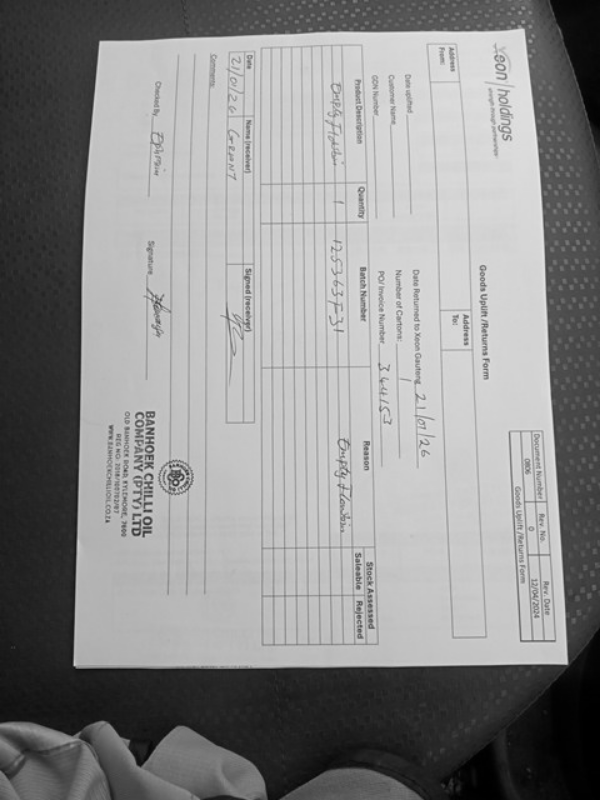 xeon/holdings
strength through partnerships
Document Number Rev. No. Rev. Date
0806 0 12/04/2024
Goods Uplift /Returns Form
Goods Uplift /Returns Form
Address From:
Address To:
Date uplifted
Date Returned to Xeon Gauteng 21/01/26
Customer Name
Number of Cartons: 1
GDN Number
PO/ Invoice Number 344153
Product Description Quantity Batch Number Reason Stock Assessed
Saleable Rejected
Empty Flowbin 1 125363F31 Empty Flowbin
Date Name (receiver) Signed (receiver)
21/01/26 GRANT
Comments:
Checked By
Signature
BANHOEK CHILLI OIL
COMPANY (PTY) LTD
OLD BANHOEK ROAD, KYLEMORE, 7600
WWW.BANHOEKCHILLIOIL.CO.ZA